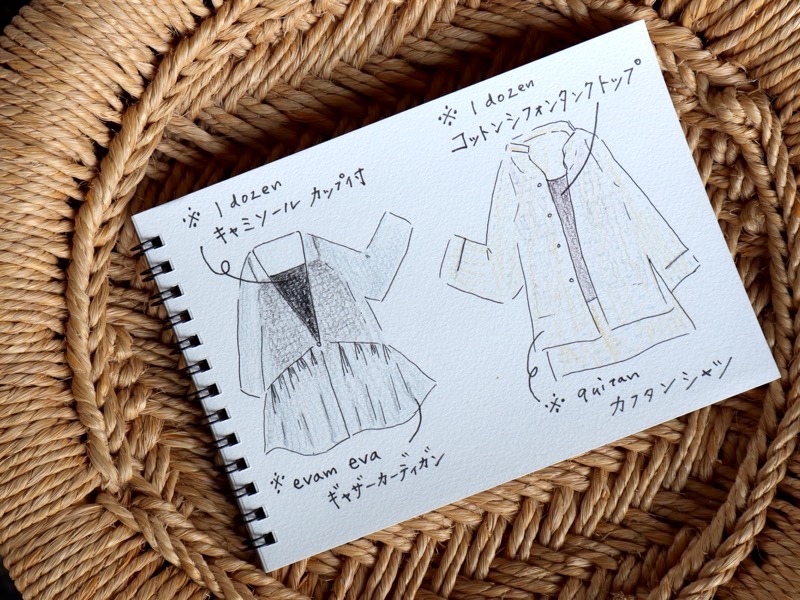 ※ 1 dozen
キャミソール カップ付
※ evam eva
ギャザーカーディガン
※ 1 dozen
コットンシフォンタンクトップ
※ quitan
カフタンシャツ